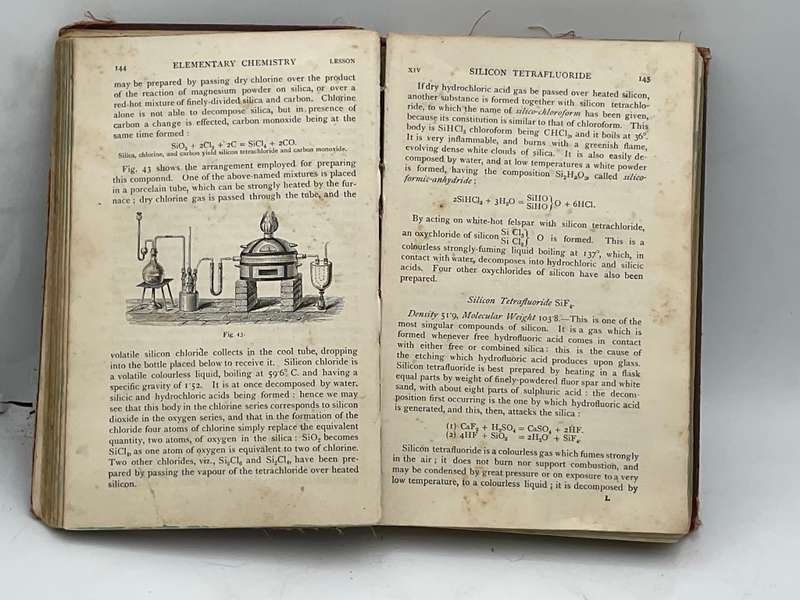 144 ELEMENTARY CHEMISTRY LESSON
may be prepared by passing dry chlorine over the product
of the reaction of magnesium powder on silica, or over a
red-hot mixture of finely-divided silica and carbon. Chlorine
alone is not able to decompose silica, but in presence of
carbon a change is effected, carbon monoxide being at the
same time formed :
SiO₂ + 2Cl₂ + 2C = SiCl₄ + 2CO.
Silica, chlorine, and carbon yield silicon tetrachloride and carbon monoxide.
Fig. 43 shows the arrangement employed for preparing
this compound. One of the above-named mixtures is placed
in a porcelain tube, which can be strongly heated by the fur-
nace ; dry chlorine gas is passed through the tube, and the
Fig. 43.
volatile silicon chloride collects in the cool tube, dropping
into the bottle placed below to receive it. Silicon chloride is
a volatile colourless liquid, boiling at 59·6° C. and having a
specific gravity of 1·52. It is at once decomposed by water,
silicic and hydrochloric acids being formed ; hence we may
see that this body in the chlorine series corresponds to silicon
dioxide in the oxygen series, and that in the formation of the
chloride four atoms of chlorine simply replace the equivalent
quantity, two atoms, of oxygen in the silica : SiO₂ becomes
SiCl₄, as one atom of oxygen is equivalent to two of chlorine.
Two other chlorides, viz., Si₂Cl₆ and Si₂Cl₄, have been pre-
pared by passing the vapour of the tetrachloride over heated
silicon.
XIV SILICON TETRAFLUORIDE 145
If dry hydrochloric acid gas be passed over heated silicon,
another substance is formed together with silicon tetrachlo-
ride, to which the name of silico-chloroform has been given,
because its constitution is similar to that of chloroform. This
body is SiHCl₃ chloroform being CHCl₃, and it boils at 36°.
It is very inflammable, and burns with a greenish flame,
evolving dense white clouds of silica. It is also easily de-
composed by water, and at low temperatures a white powder
is formed, having the composition Si₂H₂O₃, called silico-
formic-anhydride ;
2SiHCl₃ + 3H₂O = SiHO } O + 6HCl.
SiHO
By acting on white-hot felspar with silicon tetrachloride,
an oxychloride of silicon Si Cl₃ } O is formed. This is a
Si Cl₃
colourless strongly-fuming liquid boiling at 137°, which, in
contact with water, decomposes into hydrochloric and silicic
acids. Four other oxychlorides of silicon have also been
prepared.
Silicon Tetrafluoride SiF₄.
Density 51·9, Molecular Weight 103·8.—This is one of the
most singular compounds of silicon. It is a gas which is
formed whenever free hydrofluoric acid comes in contact
with either free or combined silica : this is the cause of
the etching which hydrofluoric acid produces upon glass.
Silicon tetrafluoride is best prepared by heating in a flask
equal parts by weight of finely-powdered fluor spar and white
sand, with about eight parts of sulphuric acid : the decom-
position first occurring is the one by which hydrofluoric acid
is generated, and this, then, attacks the silica :
(1) CaF₂ + H₂SO₄ = CaSO₄ + 2HF.
(2) 4HF + SiO₂ = 2H₂O + SiF₄.
Silicon tetrafluoride is a colourless gas which fumes strongly
in the air ; it does not burn nor support combustion, and
may be condensed by great pressure or on exposure to a very
low temperature, to a colourless liquid ; it is decomposed by
L